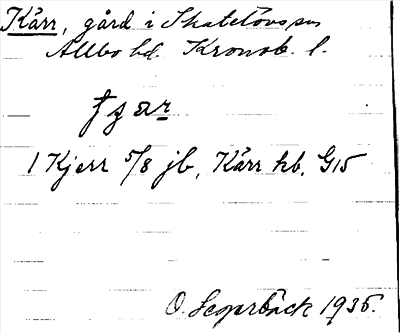 Kårr, gård i Skatelövs sn
Allbo hd. Kronob. l.
1 Kjerr 5/8 jb, Kårr kb. G15
O. Segerbäck 1935.